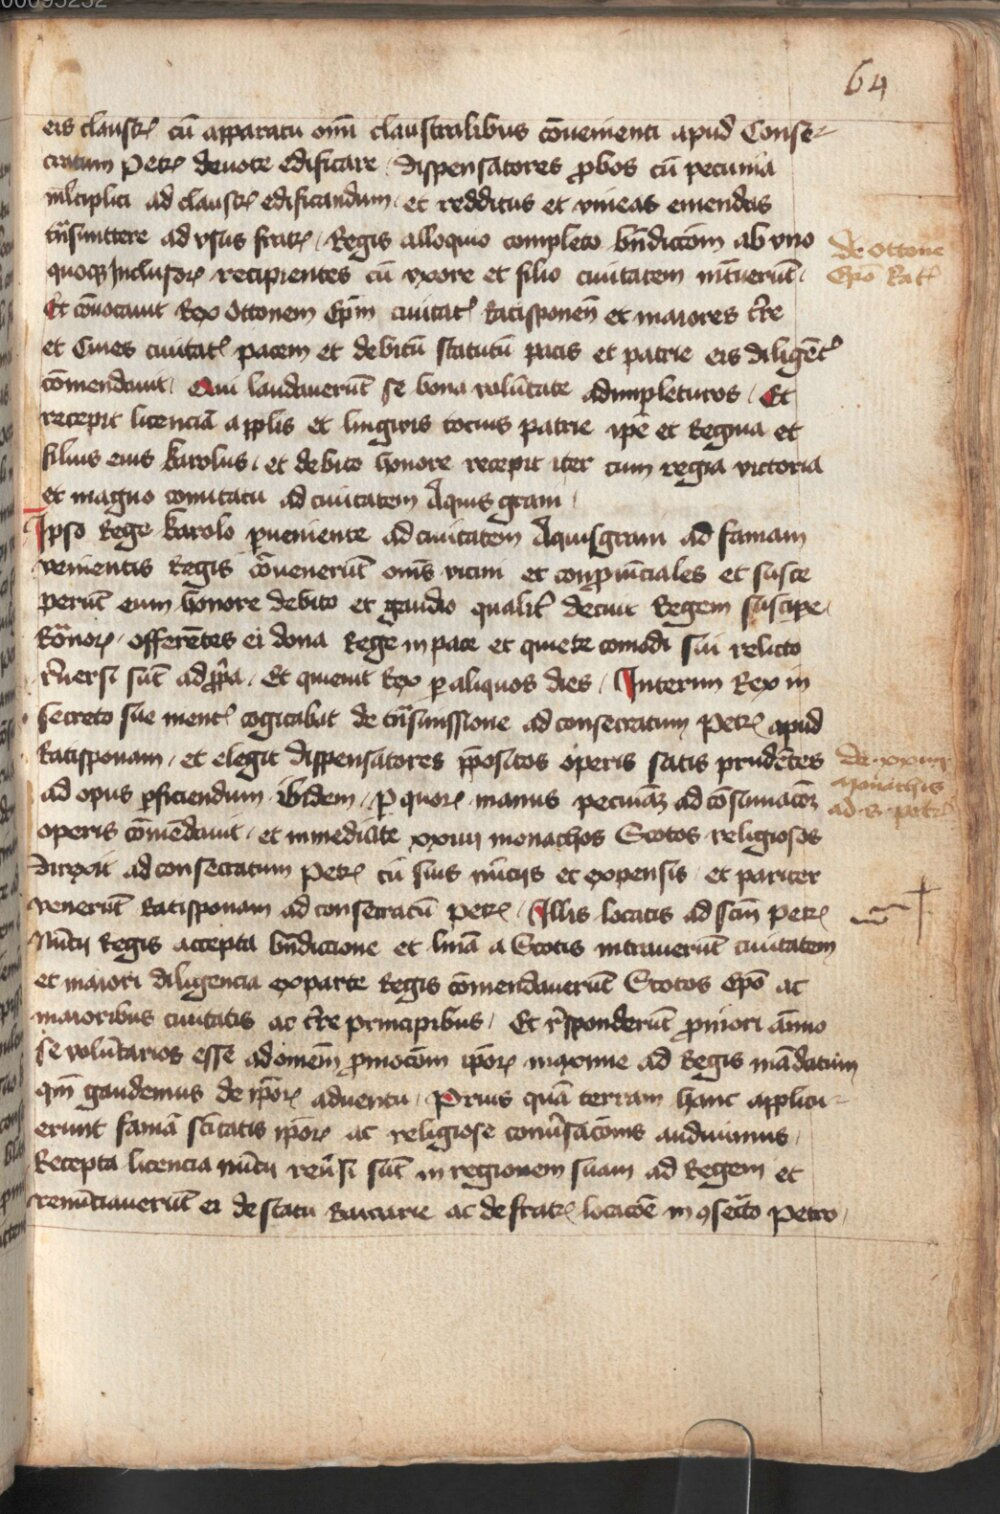 64
eis claustrꝝ cū apparatu oīm claustralibus cōvenienti apud Conse-
cratum Petrꝝ devote edificare / dispensatores ꝓbos cū pecunia
ml̄tiplici ad claustrꝝ edificandum / et redditus et vineas emendas
tn̄smittere ad vsus fratrꝝ / Regis alloquio completo bn̄dictōm ab vno
quoqꝫ Inclusorꝝ recipientes cū vxore et filio civitatem int̄verūt /
Et cōvocavit Rex Ottonem Ep̄m civitatꝭ Ratisponen̄ et maiores t̄re
et Cives civitatꝭ pacem et debitū statutū pacis et patrie eis diligent̄ꝰ
cōmendavit / Qui laudaverūt se bona volūtate adimpleturos / Et
recepit licenciā a ppl̄is et lingwis tocius patrie ip̄e et Regina et
filius eius karolus / et debito honore recepit iter cum regia victoria
et magno comitatu ad civitatem Aquis grani /
Ipso Rege karolo ꝑveniente ad civitatem Aquisgrani ad famam
venientis Regis cōvenerūt om̄s vicini et conꝓvīciales et susce
perūt eum honore debito et gaudio qualit̄ decuit Regem suscipe /
Rōnorꝝ / offerētes ei dona Rege in pace et quiete comodi sui relicto
r̄versi sūt ad ꝓp̄a / Et quievit Rex ꝑ aliquos dies / Interim Rex in
secreto sue mentꝭ cogitabat de tn̄smissione ad consecratum Petrꝝ apud
Ratisponam / et elegit dispensatores p̄positos operis satis prudētes
ad opus ꝑficiendum ibidem / ꝑ quorꝝ manus pecuniāꝫ ad cōsūmacōeꝫ
operis cōmēdavit / et immediate xxiiij monachos Scotos religiosos
direxit ad consecratum Petrꝝ cū suis nūcijs et expensis / et pariter
venerūt Ratisponam ad consecratū petrꝝ / Illis locatis ad sc̄m Petrꝝ
Nūcij Regis accepta bn̄dictione et ln̄iā a Scotis intraverūt civitatem
et maiori diligencia exparte Regis cōmendaverūt Scotos Ep̄o ac
maioribus civitatis ac t̄re principibus / Et r̄sponderūt ꝓniori animo
se volūtarios esse ad omēm ꝓmocōm ip̄orꝝ maxime ad Regis mādatum
qm̄ gaudemus de ip̄orꝝ adventu / Prius quā terram hanc applicu-
erunt famā sc̄itatis ip̄orꝝ ac religiose conv̄sacōnis audivimus /
Recepta licencia nūcij rev̄si sūt in regionem suam ad Regem et
renūciaverūt ei de statu Bavarie ac de fratrꝝ locacōe in ꝯsec̄to Petro /
de Ottone
Ep̄o Rat̄ꝭ
De xxiiij
monachis
ad s. petrꝝ